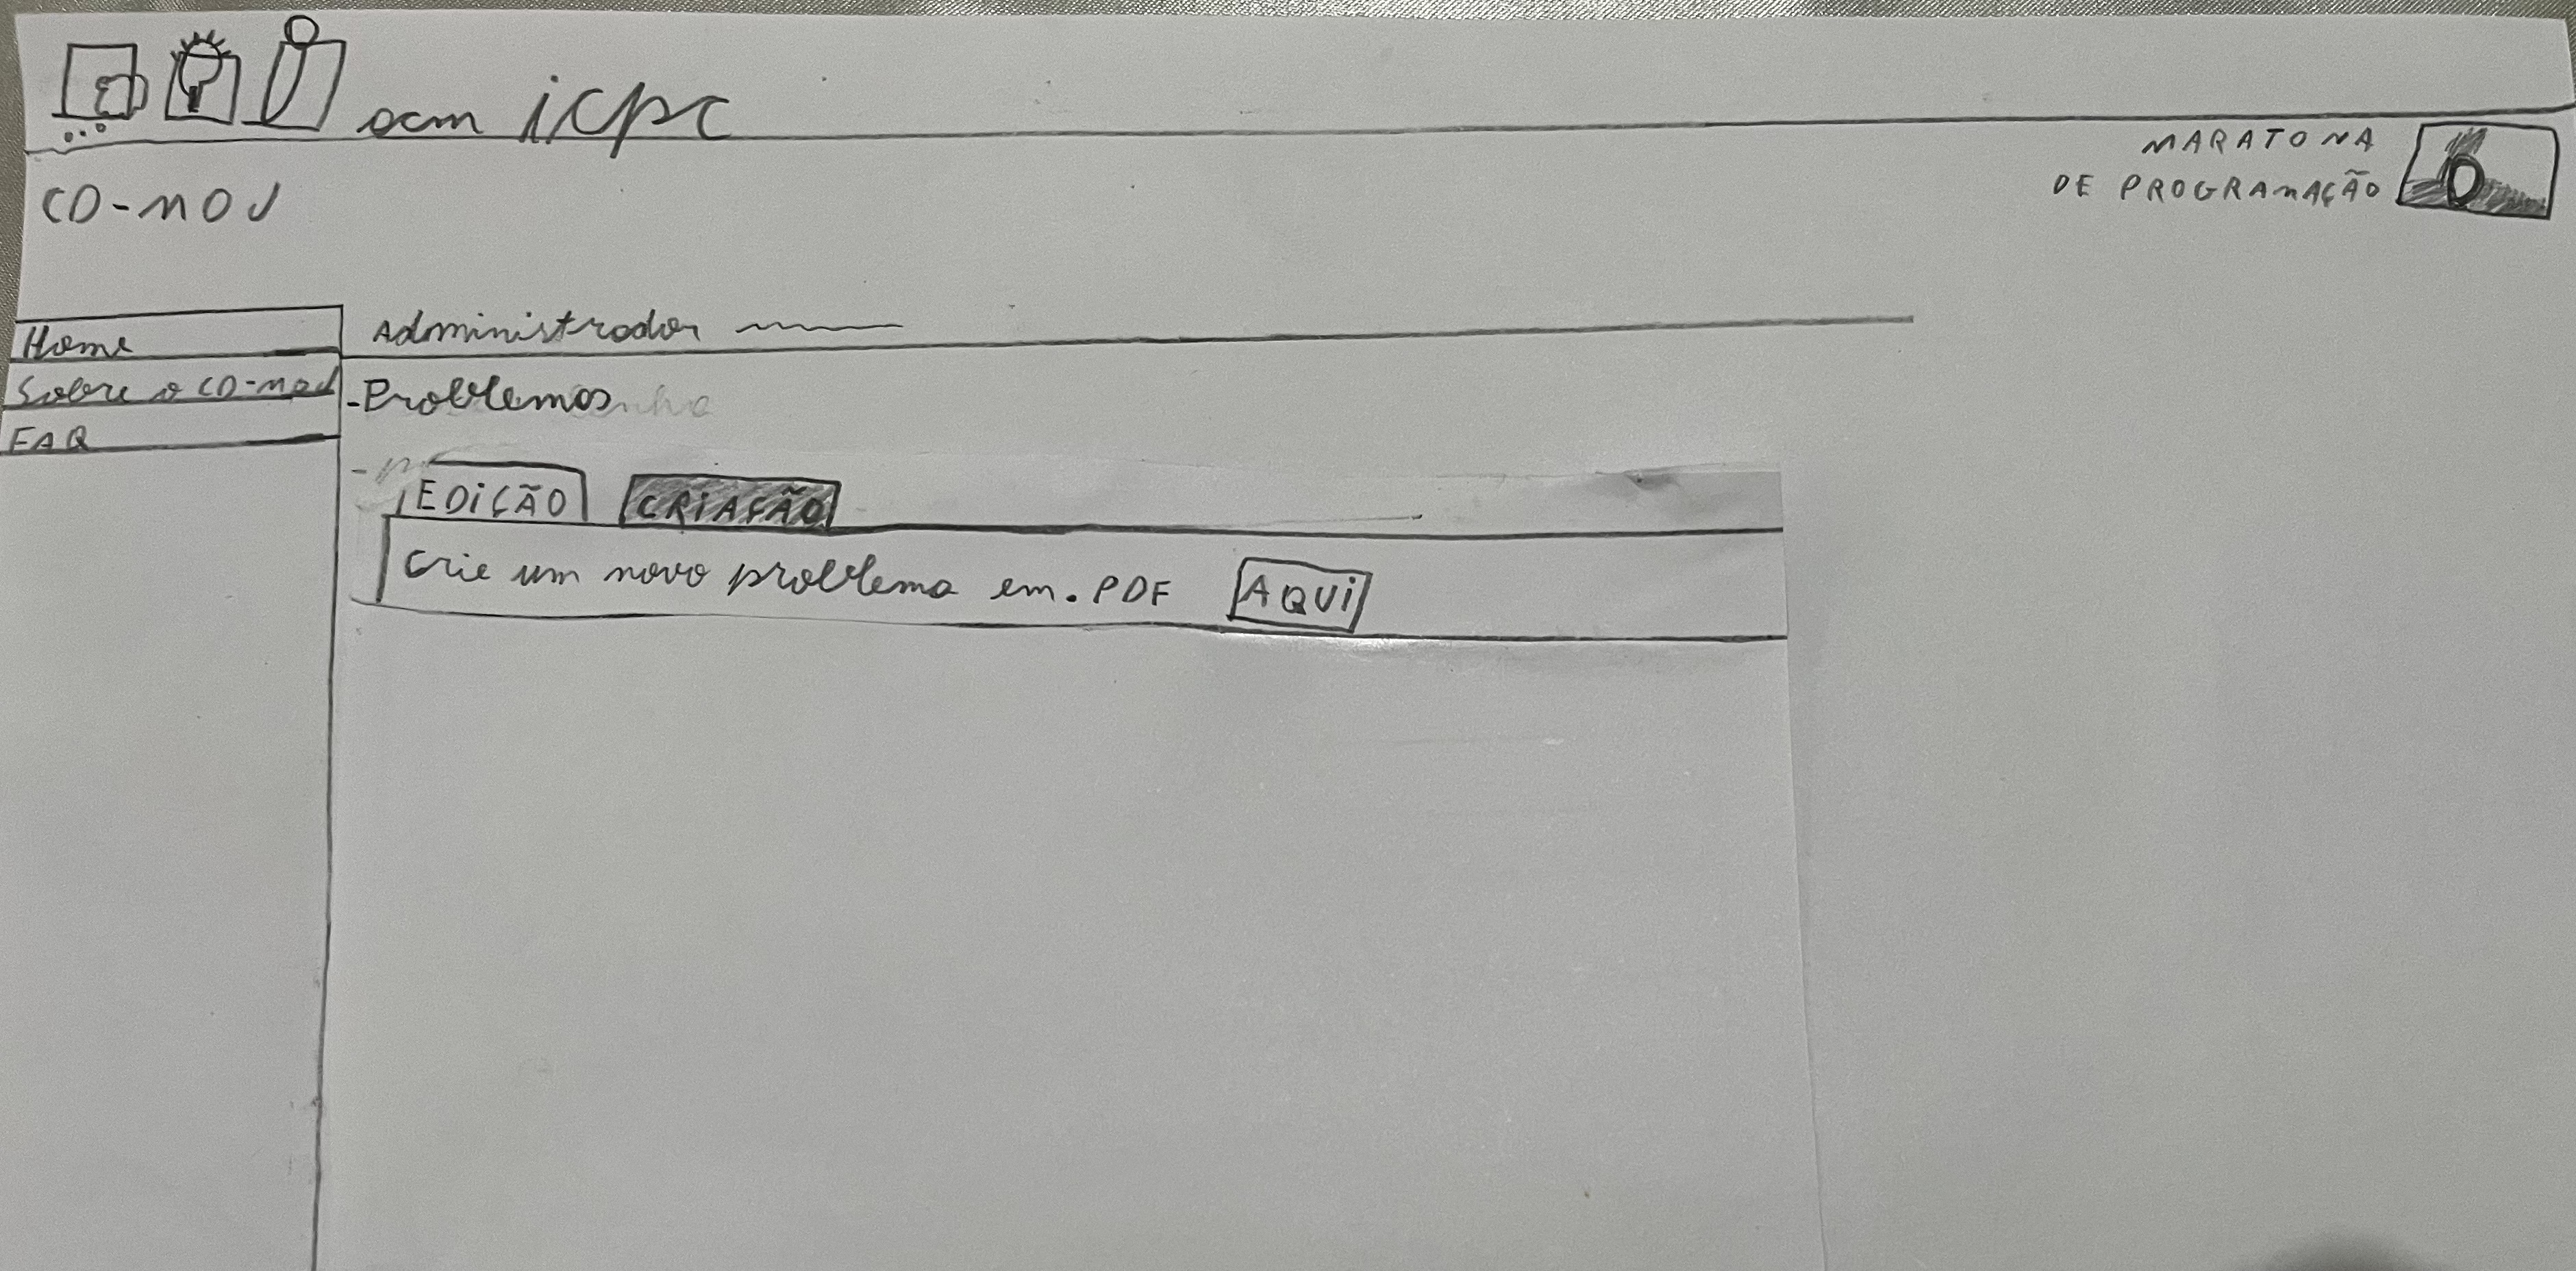 acm icpc
CD-MOJ
MARATONA
DE PROGRAMAÇÃO
Home
Sobre o CD-MOJ
FAQ
Administrador
-Problemas
EDIÇÃO CRIAÇÃO
Crie um novo problema em .PDF AQUI